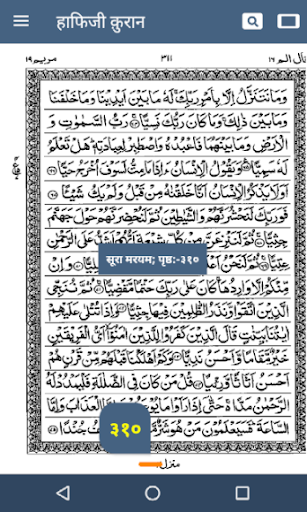 हाफिजी क़ुरान
مريم ١٩
٣١١
قال الم ١٦
وَمَا نَتَنَزَّلُ اِلَّا بِاَمْرِ رَبِّكَ لَهٗ مَا بَيْنَ اَيْدِيْنَا وَمَا خَلْفَنَا
وَمَا بَيْنَ ذٰلِكَ وَمَا كَانَ رَبُّكَ نَسِيًّا رَبُّ السَّمٰوٰتِ وَ
الْاَرْضِ وَمَا بَيْنَهُمَا فَاعْبُدْهُ وَاصْطَبِرْ لِعِبَادَتِهٖ هَلْ تَعْلَمُ
لَهٗ سَمِيًّا وَيَقُوْلُ الْاِنْسَانُ ءَاِذَا مَا مِتُّ لَسَوْفَ اُخْرَجُ حَيًّا
اَوَلَا يَذْكُرُ الْاِنْسَانُ اَنَّا خَلَقْنٰهُ مِنْ قَبْلُ وَلَمْ يَكُ شَيْـًٔا
فَوَرَبِّكَ لَنَحْشُرَنَّهُمْ وَالشَّيٰطِيْنَ ثُمَّ لَنُحْضِرَنَّهُمْ حَوْلَ جَهَنَّمَ
جِثِيًّا ثُمَّ لَنَنْزِعَنَّ مِنْ كُلِّ شِيْعَةٍ اَيُّهُمْ اَشَدُّ عَلَى الرَّحْمٰنِ
عِتِيًّا ثُمَّ لَنَحْنُ صِلِيًّا وَاِنْ
सूरा मरयम; पृष्ठ:-३१०
مِّنْكُمْ اِلَّا وَارِدُهَا كَانَ عَلٰى رَبِّكَ حَتْمًا مَّقْضِيًّا ثُمَّ نُنَجِّى
الَّذِيْنَ اتَّقَوْا وَّنَذَرُ الظّٰلِمِيْنَ فِيْهَا جِثِيًّا وَاِذَا تُتْلٰى عَلَيْهِمْ
اٰيٰتُنَا بَيِّنٰتٍ قَالَ الَّذِيْنَ كَفَرُوْا لِلَّذِيْنَ اٰمَنُوْا اَىُّ الْفَرِيْقَيْنِ
خَيْرٌ مَّقَامًا وَّاَحْسَنُ نَدِيًّا وَكَمْ اَهْلَكْنَا قَبْلَهُمْ مِّنْ قَرْنٍ هُمْ
اَحْسَنُ اَثَاثًا وَّرِءْيًا قُلْ مَنْ كَانَ فِى الضَّلٰلَةِ فَلْيَمْدُدْ لَهُ
الرَّحْمٰنُ مَدًّا حَتّٰى اِذَا رَاَوْا مَا الْعَذَابَ وَاِمَّا
السَّاعَةَ فَسَيَعْلَمُوْنَ مَنْ هُوَ شَرٌّ
३१०
منزل